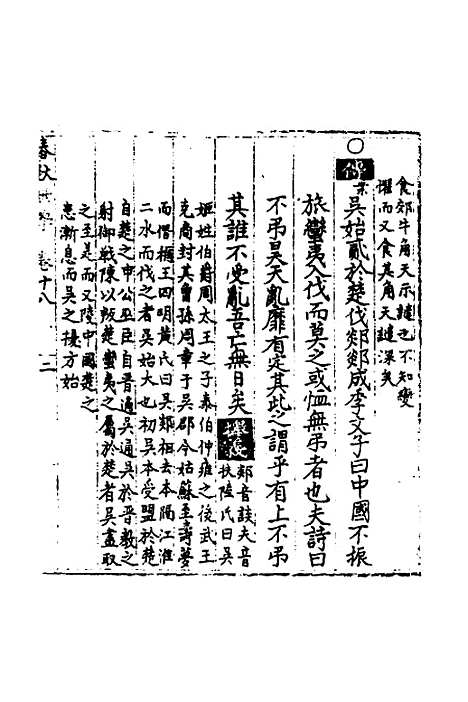 食郊牛角天示譴也不知變
懼而又食其角天譴深矣
傳 吳始貳於楚伐郯郯成季文子曰中國不振
旅蠻夷入伐而莫之或恤無弔者也夫詩曰
不弔昊天亂靡有定其此之謂乎有上不弔
其誰不受亂吾亡無日矣
郯音談夫音
扶陸氏曰吳
姬姓伯爵周太王之子泰伯仲雍之後武王
克商封其曾孫周章于吳郡今姑蘇至壽夢
而僭稱王四明黃氏曰吳郯相去本隔江淮
二水而伐之者吳始大也初吳本受盟於楚
自楚之申公巫臣自晉通吳通吳於晉教之
射御戰陳以叛楚蠻夷之屬於楚者吳盡取
之至是而又陵中國楚之
患漸息而吳之擾方始
春秋 卷十八
二